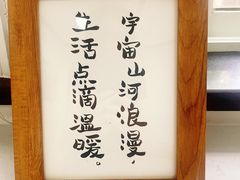 宇宙山河浪漫，
生活点滴温暖。